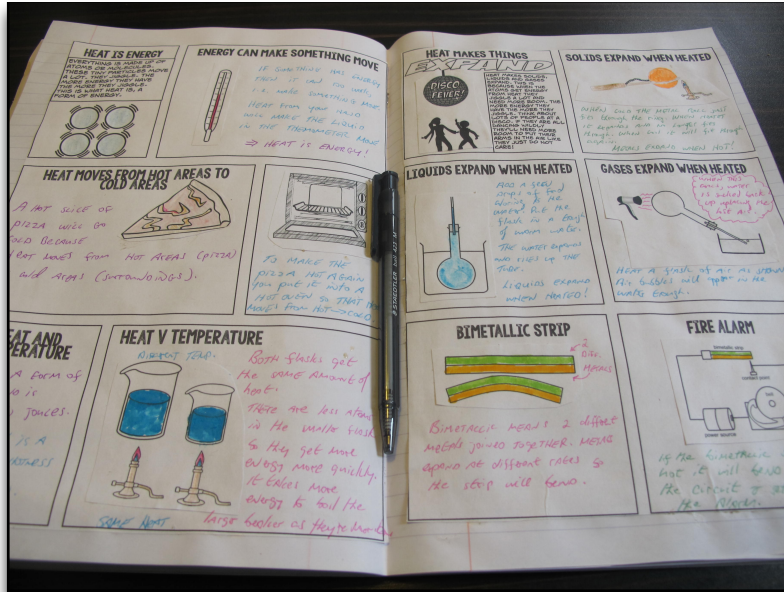 HEAT IS ENERGY
EVERYTHING IS MADE UP OF
ATOMS OR MOLECULES.
THESE TINY PARTICLES MOVE
A LOT. THEY JIGGLE. THE
MORE ENERGY THEY HAVE
THE MORE THEY JIGGLE.
THIS IS WHAT HEAT IS, A
FORM OF ENERGY.
ENERGY CAN MAKE SOMETHING MOVE
IF SOMETHING HAS ENERGY
THEN IT CAN DO WORK,
I.E. MAKE SOMETHING MOVE
HEAT FROM YOUR HAND
WILL MAKE THE LIQUID
IN THE THERMOMETER MOVE
⇒ HEAT IS ENERGY!
HEAT MOVES FROM HOT AREAS TO
COLD AREAS
A HOT SLICE OF
PIZZA WILL GO
COLD BECAUSE
HEAT MOVES FROM HOT AREAS (PIZZA)
COLD AREAS (SURROUNDINGS).
TO MAKE THE
PIZZA HOT AGAIN
YOU PUT IT INTO A
HOT OVEN SO THAT
MOVES FROM HOT→COLD
EAT AND
PERATURE
A FORM OF
IS
JOULES.
IS A
HEAT V TEMPERATURE
DIFFERENT TEMP.
BOTH flasks get
the SAME AMOUNT of
heat.
THERE ARE LESS ATOMS
in the smaller flask
So they get more
energy more quickly.
It takes more
energy to boil the
large beaker as they're
SAME HEAT.
STAEDTLER ball
HEAT MAKES THINGS
EXPAND
DISCO
FEVER!
HEAT MAKES SOLIDS,
LIQUIDS AND GASES
EXPAND. THIS IS
BECAUSE WHEN THE
ATOMS GET ENERGY
FROM HEAT THEY
JIGGLE A LOT &
NEED MORE ROOM. THE
MORE ENERGY THEY
HAVE THE MORE THEY
JIGGLE. THINK ABOUT
LOTS OF PEOPLE AT A
DISCO. IF THEY ARE ALL
DANCING WILDLY
THEY'LL NEED MORE
ROOM TO PUT THEIR
ARMS IN THE AIR LIKE
THEY JUST DO NOT
CARE!
SOLIDS EXPAND WHEN HEATED
WHEN COLD THE METAL BALL will
go through the ring. When heated
METALS EXPAND WHEN HOT!
LIQUIDS EXPAND WHEN HEATED
ADD A FEW
drops of food
colouring to the
water. Put the
flask in a trough
of warm water.
THE WATER EXPANDS
AND RISES UP THE
TUBE.
LIQUIDS EXPAND
WHEN HEATED!
GASES EXPAND WHEN HEATED
WHEN THIS
COOLS, WATER
IS sucked back
up
HEAT A flask of AIR AS SHOWN
Air bubbles will appear in the
water trough.
BIMETALLIC STRIP
2
DIFF.
METALS
BIMETALLIC MEANS 2 different
METALS joined TOGETHER. METALS
expand AT different rates so
the strip will BEND.
FIRE ALARM
bimetallic strip
contact point
power source
hot it will bend
the circuit
the Alarm.